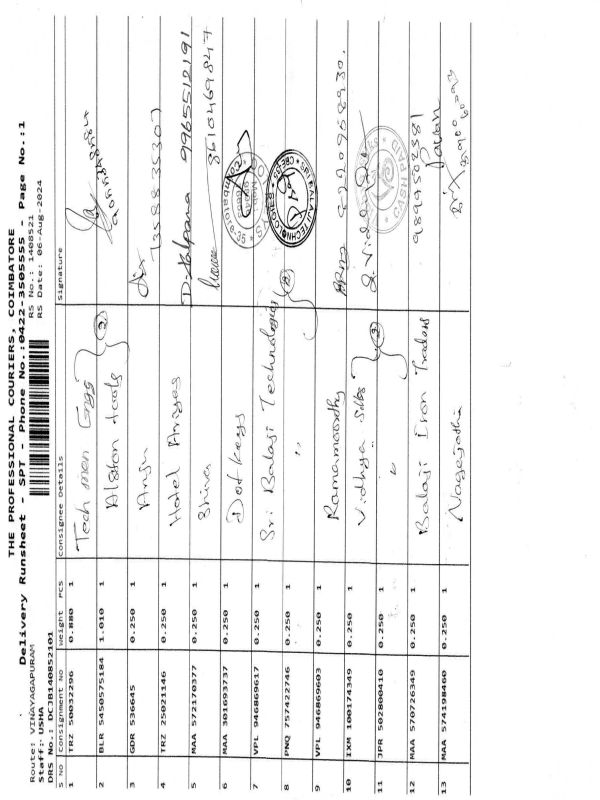 THE PROFESSIONAL COURIERS, COIMBATORE
Delivery Runsheet - SPT - Phone No.:0422-3505555 - Page No.:1
Route: VINAYAGAPURAM RS No.: 1408521
Staff: USHA RS Date: 06-Aug-2024
DRS No.: DCJB140852101
S No Consignment No Weight PCS Consignee Details Signature
1 TRZ 50032296 0.880 1 Tech men Engg
2 BLR 5450575184 1.010 1 Alston tools 2
3 GDR 536645 0.250 1 Anju
4 TRZ 25021146 0.250 1 Hotel Ariyas D. Kalpana 9965512191
5 MAA 572170377 0.250 1 Shiva 8610469847
6 MAA 301603737 0.250 1 Dot keys Coimbatore-35
7 VPL 946869617 0.250 1 Sri Balaji Technologies
8 PNQ 757422746 0.250 1 " 2 SRI BALAJI TECHNOLOGIES CBE-35
9 VPL 946869603 0.250 1 Ramamoorthy
10 IXM 100174349 0.250 1 Vidhya silks
11 JPR 502800410 0.250 1 " 2 CASH PAID
12 MAA 570726349 0.250 1 Balaji Iron Traders 9894502381
13 MAA 574198460 0.250 1 Nagajothi Pavan